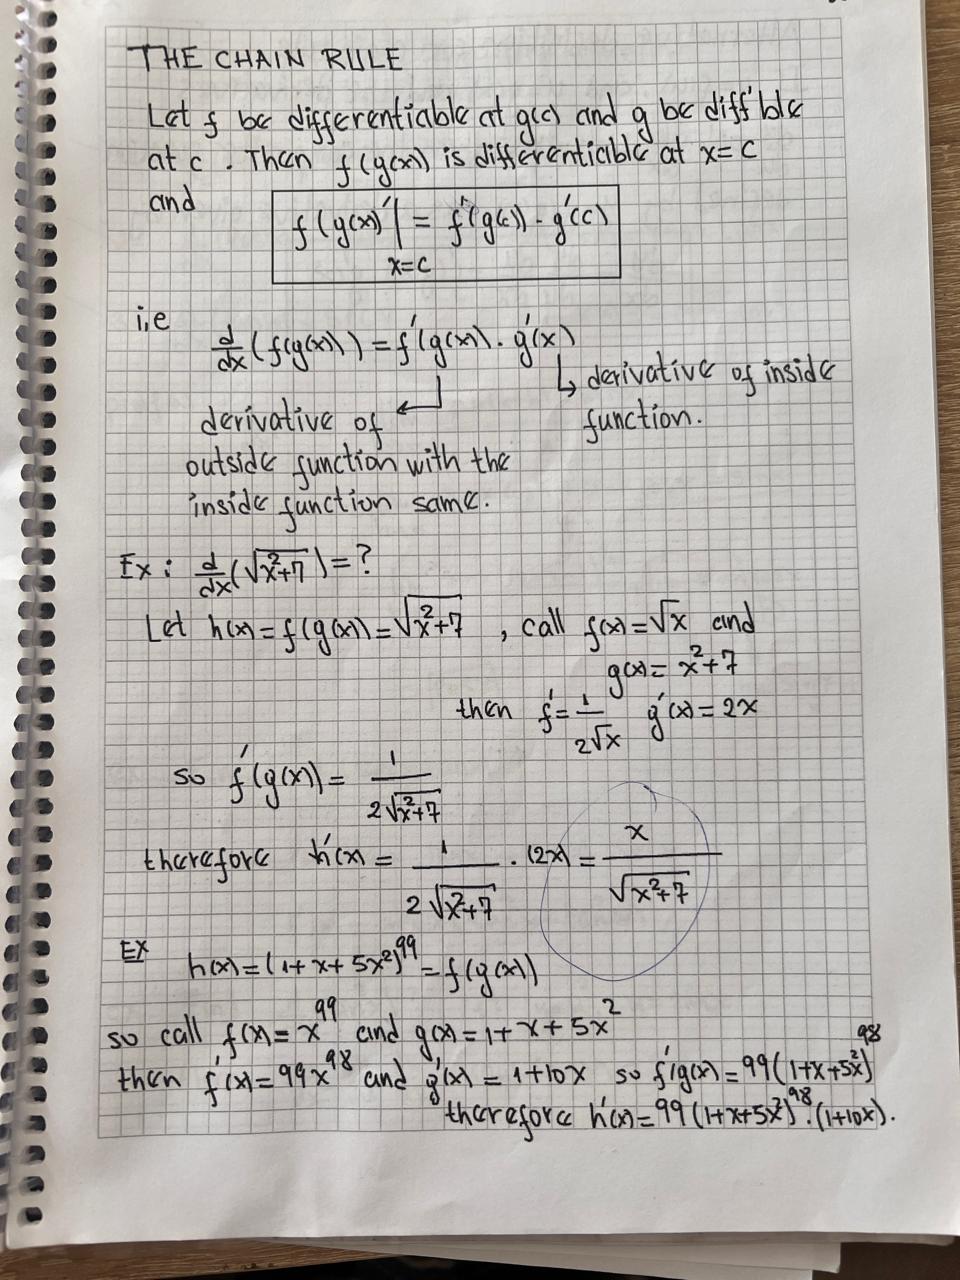 THE CHAIN RULE
Let f be differentiable at g(c) and g be diff'ble
at c. Then f(g(x)) is differentiable at x=c
and
f(g(x)'|x=c = f'(g(c)) · g'(c)
i,e
d/dx (f(g(x))) = f'(g(x)). g'(x)
↳ derivative of inside
function.
derivative of
outside function with the
inside function same.
Ex: d/dx(√(x²+7))=?
Let h(x)=f(g(x))=√(x²+7), call f(x)=√x and
g(x)= x²+7
then f'=1/(2√x) g'(x)=2x
so f'(g(x))= 1/(2√(x²+7))
therefore h'(x)= 1/(2√(x²+7)) . (2x)= x/√(x²+7)
EX
h(x)=(1+x+5x²)⁹⁹=f(g(x))
so call f(x)=x⁹⁹ and g(x)=1+x+5x²
then f'(x)=99x⁹⁸ and g'(x)=1+10x so f'(g(x)=99(1+x+5x²)⁹⁸
therefore h'(x)=99(1+x+5x²)⁹⁸.(1+10x).